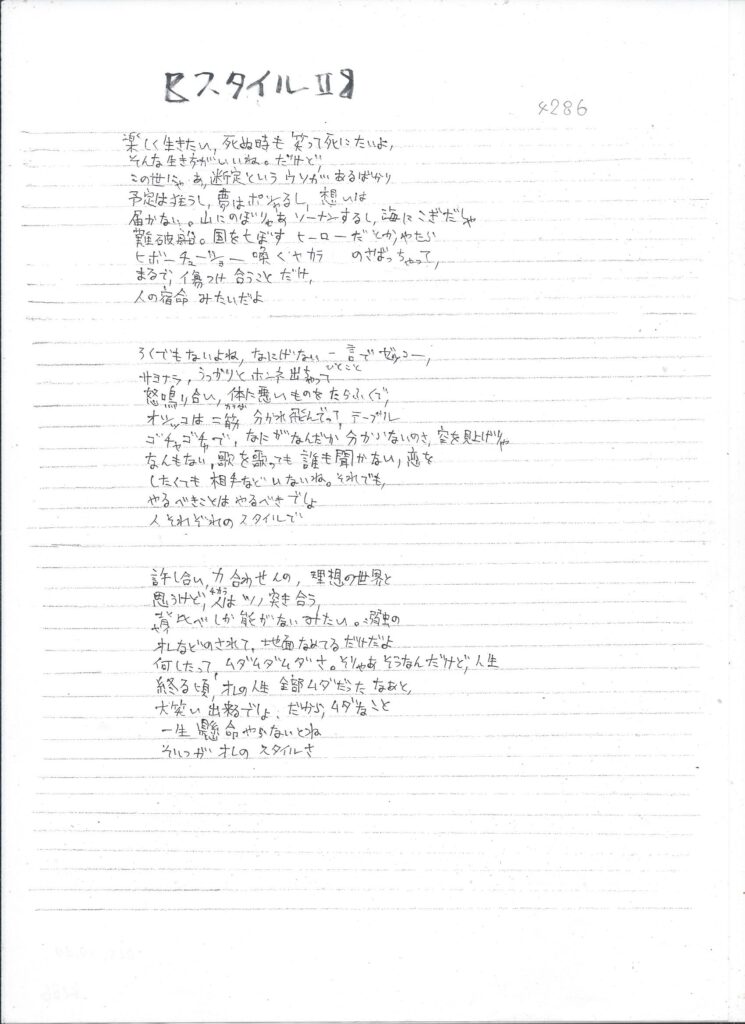 【スタイルⅡ】
4286
楽しく生きたい, 死ぬ時も 笑って死にたいよ,
そんな生き方がいいね。だけど,
この世にゃあ, 断定というウソがあるばかり
予定は狂うし, 夢はポシャるし, 想いは
届かない。山にのぼりゃあ ソーナンするし, 海にこぎだしゃ
難破船。国を亡ぼす ヒーローだとか, やたら
ヒボーチューショー 喚くヤカラ のさばっちゃって,
まるで, 傷つけ合うことだけ,
人の宿命 みたいだよ
ろくでもないよね, なにげない 一言でゼッコー,
ひとこと
サヨナラ, うっかりとホンネ出ちゃって
怒鳴り合い, 体に悪いものをたらふくで,
オシッコは二筋 分かれ飛んでって, テーブル
ゴチャゴチャで, なにがなんだか分かんないのさ, 空を見上げりゃ
なんもない, 歌を歌っても 誰も聞かない, 恋を
したくても 相手などいないね。それでも,
やるべきことは やるべきでしょ
人それぞれの スタイルで
許し合い, 力合わせんの, 理想の世界と
チカラ
思うけど, 人はツノ突き合う,
背比べしか能がないみたい。
オレなどのされて, 地面なめてるだけだよ
何したって ムダムダムダさ。そりゃあ そうなんだけど, 人生
終る頃, オレの人生 全部ムダだったなあと,
大笑い 出来るでしょ, だから, ムダなこと
一生懸命 やらないとね
そいつが オレの スタイルさ